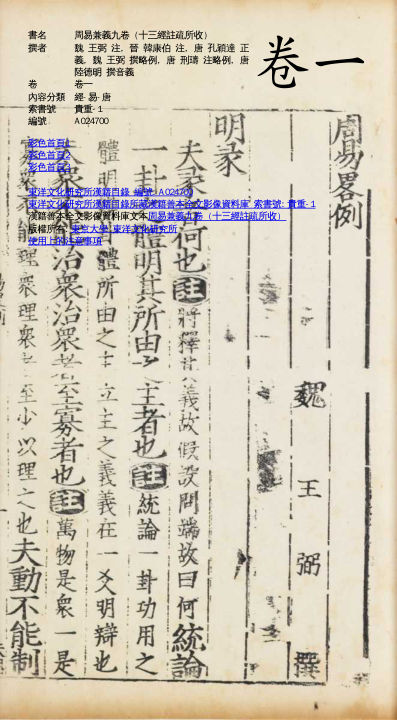 書名 周易兼義九卷（十三經註疏所收）
撰者 魏 王弼 注，晉 韓康伯 注，唐 孔穎達 正
義，魏 王弼 撰略例，唐 刑璹 注略例，唐
陸德明 撰音義
卷 卷一
內容分類 經-易-唐
索書號 貴重-1
編號 A024700
卷一
彩色首頁1
彩色首頁2
彩色首頁3
東洋文化研究所漢籍目錄 編號: A024700
東洋文化研究所漢籍目錄所藏漢籍善本全文影像資料庫 索書號: 貴重-1
漢籍善本全文影像資料庫文本周易兼義九卷（十三經註疏所收）
版權所有: 東京大學 東洋文化研究所
使用上的注意事項
周易畧例
魏 王 弼 撰
明彖
夫彖者何也註將釋其義故假設問端故曰何統論
一卦之體明其所由之主者也註統論一卦功用之
體明辯卦體所由之主立主之義義在一爻明辯也
夫衆不能治衆治衆者至寡者也註萬物是衆一是
理衆理衆者至少以理之也夫動不能制